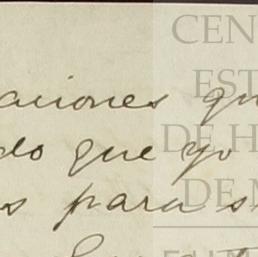 aciones qu
do que yo
s para s
CEN
EST
DE H
DE M